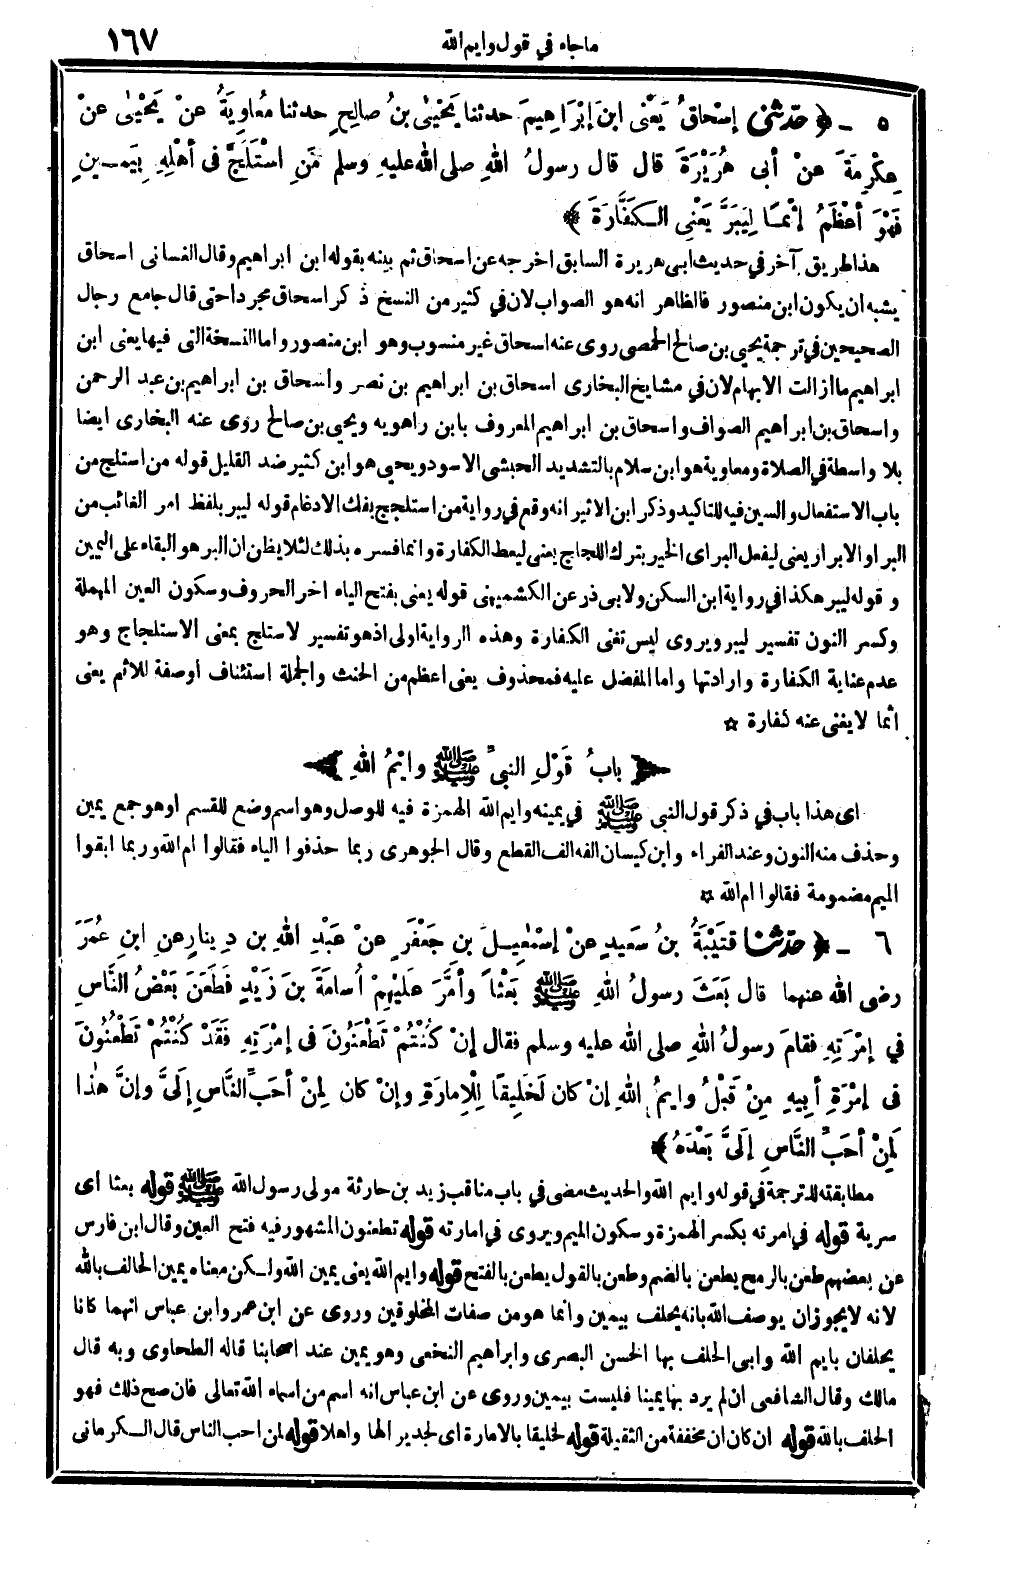 ماجاء في قول وايم الله
١٦٧
٥ ـ ﴿ حَدَّثَنِي إِسْحَاقُ يَعْنِي ابنَ إِبْرَاهِيمَ حدثنا يَحْيَىٰ بنُ صالحٍ حدثنا مُعاوِيَةُ عنْ يَحْيَىٰ عنْ
عِكْرِمَةَ عنْ أبي هُرَيْرَةَ قال قال رسولُ اللهِ صلى الله عليهِ وسلم مَنِ اسْتَلَجَّ فِي أهْلِهِ بِيَمـينٍ
فَهْوَ أعْظَمُ إنْمَـا لِيَبَرَّ يَعْنِي الـكَفَّارَةَ ﴾
هذا طريق آخر في حديث ابى هريرة السابق اخرجه عن اسحاق ثم بينه بقوله ابن ابراهيم وقال الغسانى اسحاق
يشبه ان يكون ابن منصور فالظاهر انه هو الصواب لان في كثير من النسخ ذكر اسحاق مجردا حتى قال جامع رجال
الصحيحين في ترجمة يحيى بن صالح الحمصى روى عنه اسحاق غير منسوب وهو ابن منصور واما النسخة التى فيها يعنى ابن
ابراهيم ما أزالت الابهام لان في مشايخ البخارى اسحاق بن ابراهيم بن نصر واسحاق بن ابراهيم بن عبد الرحمن
واسحاق بن ابراهيم الصواف واسحاق بن ابراهيم المعروف بابن راهويه ويحيى بن صالح روى عنه البخارى ايضا
بلا واسطة في الصلاة ومعاوية هو ابن سلام بالتشديد الحبشى الاسود ويحيى هو ابن كثير ضد القليل قوله من استلج من
باب الاستفعال والسين فيه للتاكيد وذكر ابن الاثير انه وقع في رواية من استلجج بفك الادغام قوله ليبر بلفظ امر الغائب من
البر او الابراز يعنى ليفعل البر اى الخير بترك اللجاج يعنى ليعط الكفارة وانما فسره بذلك لئلا يظن ان البر هو البقاء على اليمين
و قوله ليبر هكذا في رواية ابن السكن ولابى ذر عن الكشميهنى قوله يعنى بفتح الياء اخر الحروف وسكون العين المهملة
وكسر النون تفسير ليبر ويروى ليس تغنى الكفارة وهذه الرواية اولى اذ هو تفسير لاستلج بمعنى الاستلجاج وهو
عدم عناية الكفارة وارادتها واما المفضل عليه فمحذوف يعنى اعظم من الحنث والجملة استئناف اوصفة للاثم يعنى
أنما لا يغنى عنه كفارة ☆
﴿ بابُ قَوْلِ النبيِّ ﷺ وايْمُ اللهِ ﴾
اى هذا باب في ذكر قول النبى ﷺ في يمينه وايم الله الهمزة فيه للوصل وهو اسم وضع للقسم او هو جمع يمين
وحذف منه النون وعند الفراء وابن كيسان الفه الف القطع وقال الجوهرى ربما حذفوا الياء فقالوا ام الله وربما ابقوا
الميم مضمومة فقالوا ام الله ☆
٦ ـ ﴿ حَدَّثَنَا قُتَيْبَةُ بنُ سَعِيدٍ عنْ إسْمٰعِيلَ بنِ جَعْفَرٍ عنْ عَبْدِ اللهِ بن دِينارٍ عنِ ابنِ عُمَرَ
رضى الله عنهما قال بَعَثَ رسولُ اللهِ ﷺ بَعْثاً وأمَّرَ عَلَيْهِمْ أُسامَةَ بنَ زَيْدٍ فَطَعَنَ بَعْضُ النَّاسِ
في إمْرَتِهِ فقامَ رسولُ اللهِ صلى الله عليه وسلم فقال إنْ كُنْتُمْ تَطْعَنُونَ فِي إمْرَتِهِ فَقَدْ كُنْتُمْ تَطْعُنُونَ
فى إمْرَةِ أبِيهِ مِنْ قَبْلُ وايمُ اللهِ إنْ كان لَخَلِيقًا لِلْإمارَةِ وإنْ كان لَمِنْ أحَبِّ النَّاسِ إلَىَّ وإنَّ هٰذا
لَمِنْ أحَبِّ النَّاسِ إلَىَّ بَعْدَهُ ﴾
مطابقته للترجمة في قوله وايم الله والحديث مضى في باب مناقب زيد بن حارثة مولى رسول الله ﷺ قوله بعثا اى
سرية قوله في امرته بكسر الهمزة وسكون الميم ويروى في امارته قوله تطعنون المشهور فيه فتح العين وقال ابن فارس
عن بعضهم طعن بالرمح يطعن بالضم وطعن بالقول يطعن بالفتح قوله وايم الله يعنى يمين الله ولـكن معناه يمين الحالف بالله
لانه لا يجوز ان يوصف الله بانه يحلف بيمين وانما هو من صفات المخلوقين وروى عن ابن عمر وابن عباس انهما كانا
يحلفان بايم الله وابى الحلف بها الحسن البصرى وابراهيم النخعى وهو يمين عند اصحابنا قاله الطحاوى وبه قال
مالك وقال الشافعى ان لم يرد بها يمينا فليست بيمين وروى عن ابن عباس انه اسم من اسماء الله تعالى فان صح ذلك فهو
الحلف بالله قوله ان كان ان مخففة من الثقيلة قوله لخليقا بالامارة اى لجدير الها واهلا قوله لمن احب الناس قال الـكرمانى